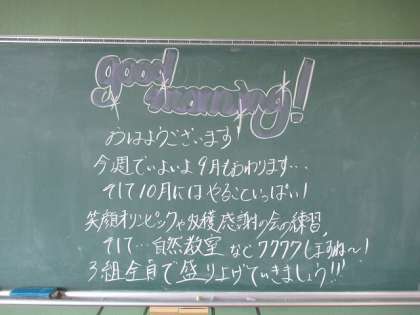 good
morning!
おはようございます
今週でいよいよ9月もおわります…
そして10月にはやることいっぱい!
笑顔オリンピックや収穫感謝の会の練習、
そして…自然教室などワクワクしますね～!
3組全員で盛り上げていきましょう!!!